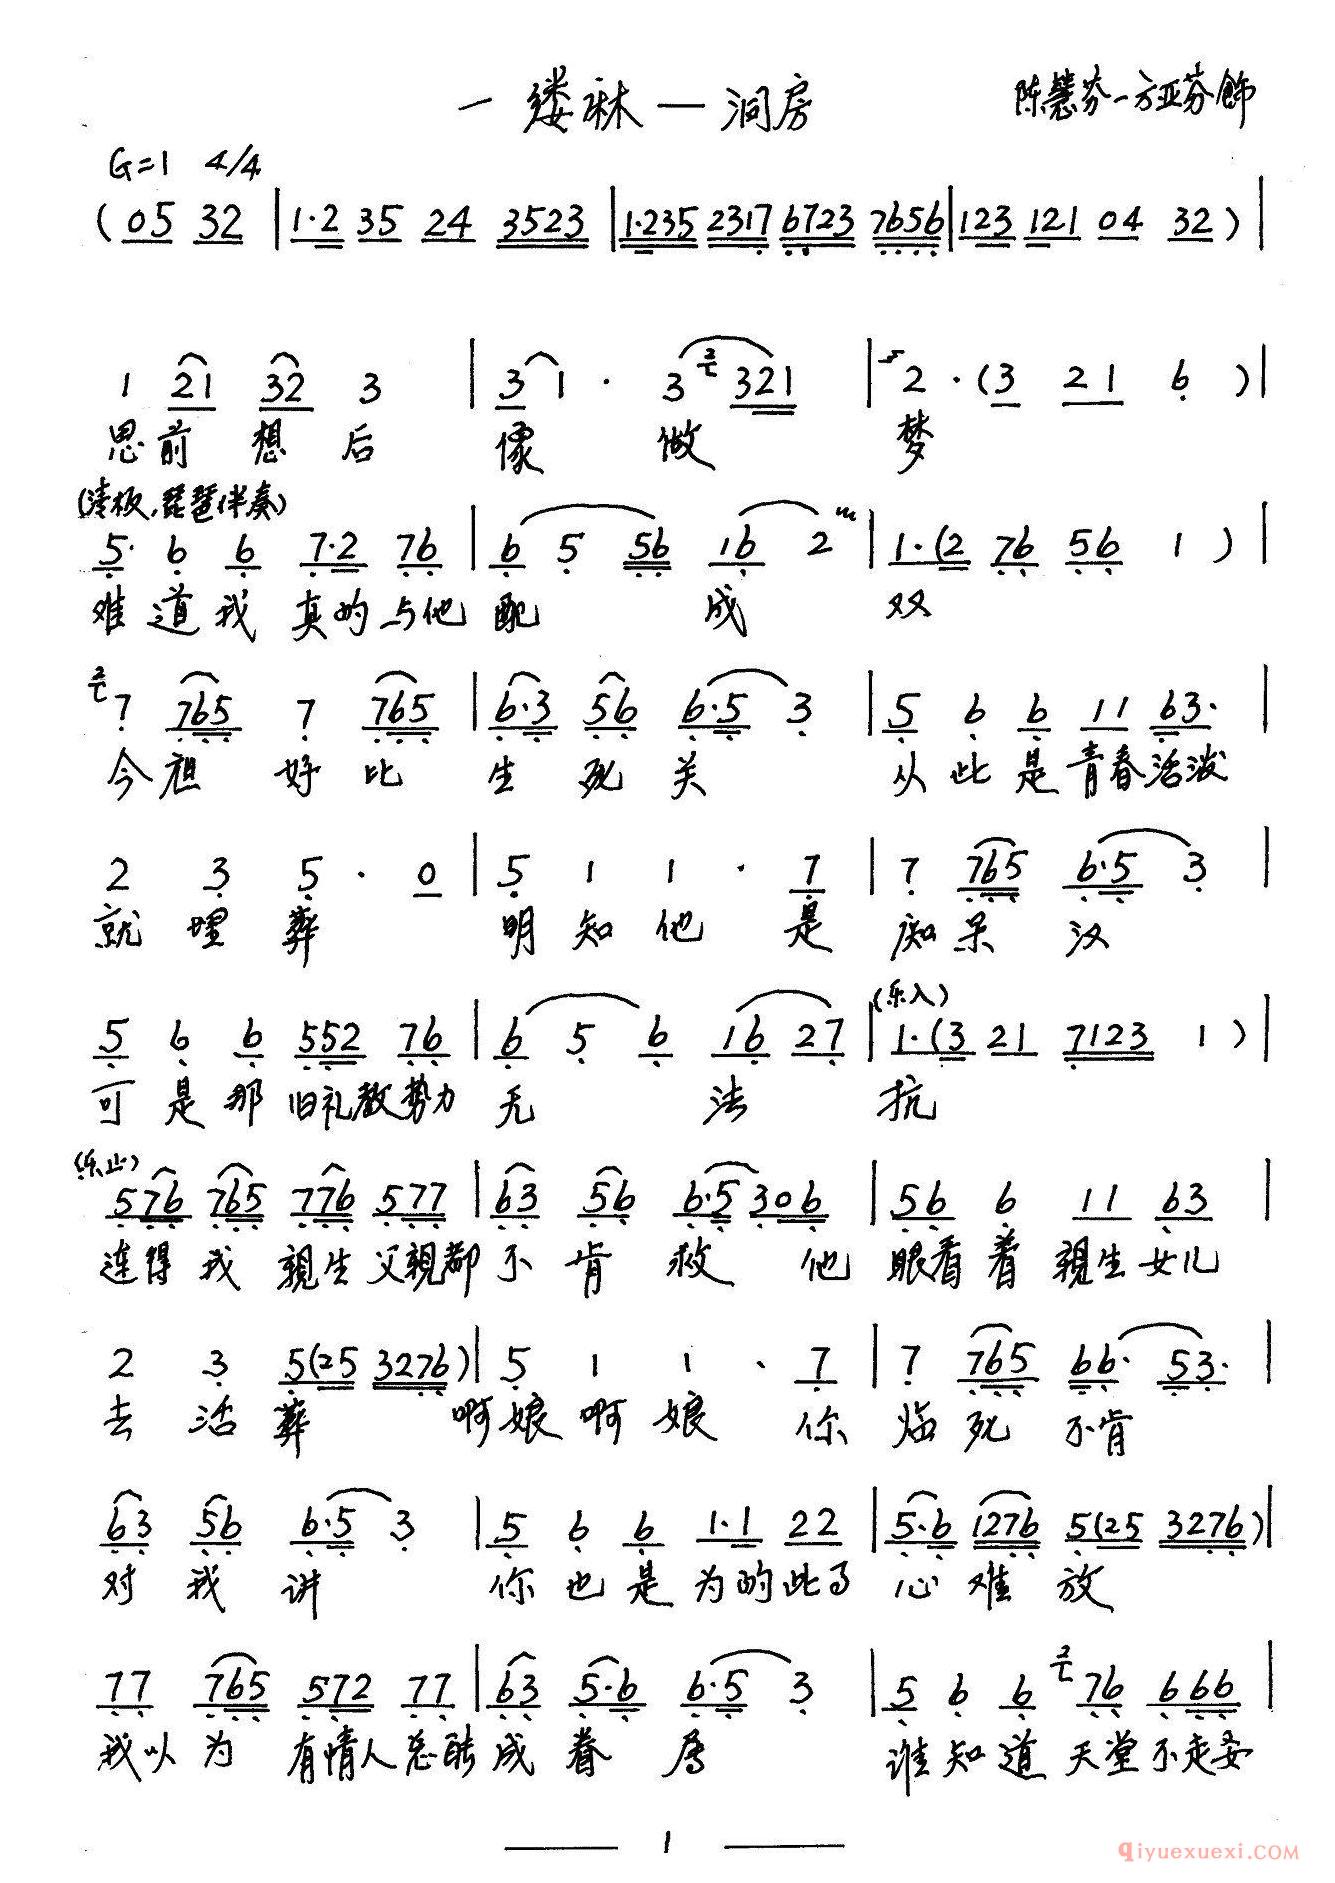 一缕麻—洞房
陈慧芬—方亚芬饰
G=1 4/4
(05 32 | 1·2 35 24 3523 | 1·235 2317 6723 7656 | 123 121 04 32) |
1 21 32 3 | 3 1 · 3 2 321 | 2 · (3 21 6) |
思前想后 像做 梦
(清板,琵琶伴奏)
5· 6 6 7·2 76 | 6 5 56 16 2 | 1·(2 76 56 1) |
难道我真的与他配成双
2 7 765 7 765 | 6·3 56 6·5 3 | 5 6 6 11 63· |
今夜好比生死关 从此是青春活泼
2 3 5 · 0 | 5 1 1 · 7 | 7 765 6·5 3 |
就埋葬 明知他是痴呆汉
(乐入)
5 6 6 552 76 | 6 5 6 16 27 | 1·(3 21 7123 1) |
可是那旧礼教势力无法抗
(乐止)
576 765 776 577 | 63 56 6·5 306 | 56 6 11 63 |
连得我親生父親都不肯救 他眼看着親生女儿
2 3 5(25 3276) | 5 1 1 · 7 | 7 765 66· 53· |
去活葬 啊娘啊娘 你临死不肯
63 56 6·5 3 | 5 6 6 1·1 22 | 5·6 1276 5(25 3276) |
对我讲 你也是为的此事心难放
77 765 572 77 | 63 5·6 6·5 3 | 5 6 6 2 76 666 |
我以为有情人总能成眷属 谁知道天堂不走要
1
qiyuexuexi.COM